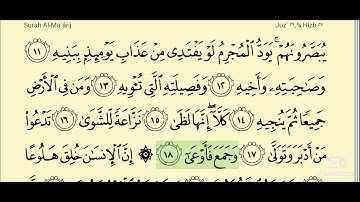 Surah Al-Ma'ārij Juz' ٢٩, ¾ Hizb ٥٧
يُبَصَّرُونَهُمْ ۚ يَوَدُّ ٱلْمُجْرِمُ لَوْ يَفْتَدِى مِنْ عَذَابِ يَوْمِئِذٍۭ بِبَنِيهِ ١١
وَصَـٰحِبَتِهِۦ وَأَخِيهِ ١٢ وَفَصِيلَتِهِ ٱلَّتِى تُـْٔوِيهِ ١٣ وَمَن فِى ٱلْأَرْضِ
جَمِيعًا ثُمَّ يُنجِيهِ ١٤ كَلَّآ ۖ إِنَّهَا لَظَىٰ ١٥ نَزَّاعَةً لِّلشَّوَىٰ ١٦ تَدْعُوا۟
مَنْ أَدْبَرَ وَتَوَلَّىٰ ١٧ وَجَمَعَ فَأَوْعَىٰٓ ١٨ ۞ إِنَّ ٱلْإِنسَـٰنَ خُلِقَ هَلُوعًا